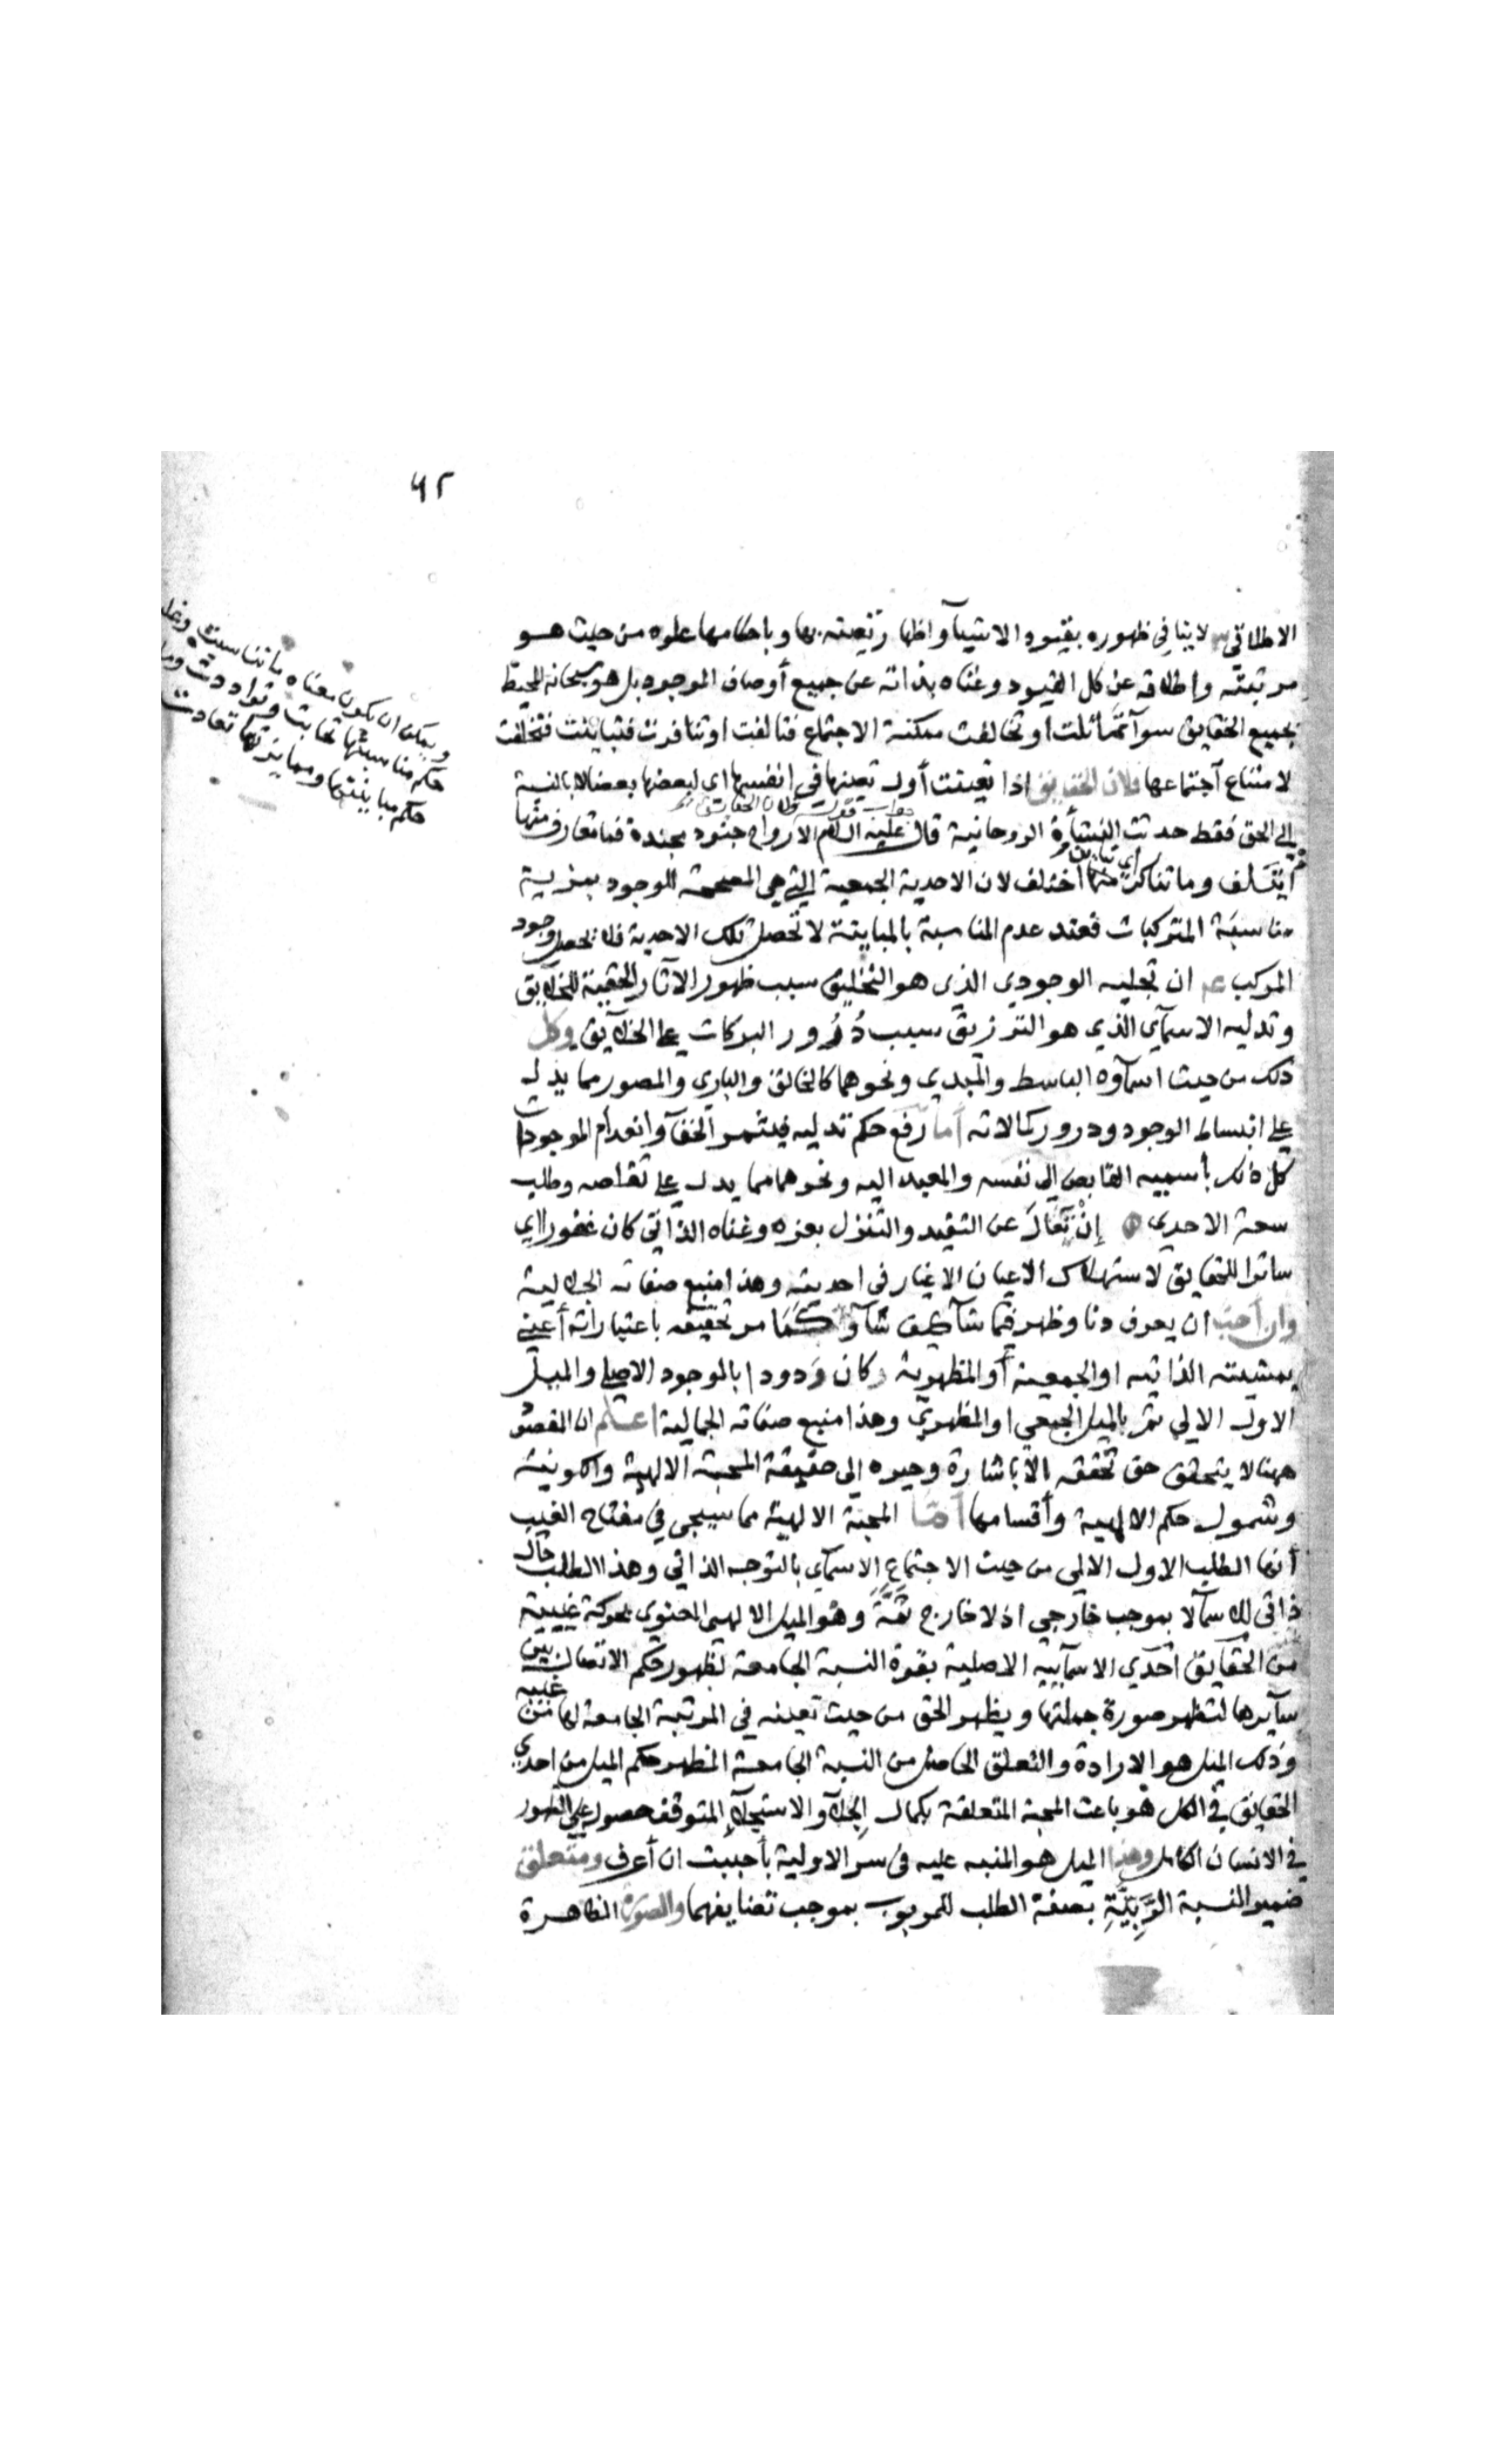 ٩٢
الاطلاقي لا ينافي ظهوره بقيود الاشياء واظهار تعينه بها وباحكامها علوه من حيث هو
مرتبته واطلاقه عن كل القيود وغناه بذاته عن جميع أوصاف الموجود بل هو سبحانه المحيط
بجميع الحقايق سوآء تماثلت او تخالفت ممكنة الاجتماع فتالفت او تنافرت فتباينت فتخلفت
لامتناع آجتماعها فلان الحقايق اذا تعينت أول تعينها في انفسها اي لبعضها بعضا لا بالنسبة
إلى الحق فقط حدثت النشأة الروحانية قال عليه السلام الآرواح جنود مجندة فما تعارف منها
ايتلف وما تناكر منها اختلف لان الاحدية الجمعية التي هي المصححة للوجود بمزية
مناسبة المتركبات فعند عدم المناسبة بالمباينة لا تحصل تلك الاحدية فلا يحصل وجود
المركب ان تجليه الوجودي الذي هو التخليق سبب ظهور الاثار الحقية للخلايق
وتدليه الاسمآي الذي هو الترزيق سبب دُرُور البركات على الخلايق وكل
ذلك من حيث اسمآوه الباسط والمبدي ونحوهما كالخالق والباري والمصور مما يدل
على انبساط الوجود ودرور كمالاته أما رفع حكم تدليه فيثمر الخفآ وانعدام الموجودات
كل ذلك بأسميه القابض الى نفسه والمعيد اليه ونحوهما مما يدل على تقلصه وطلب
سعة الاحدي إنْ تَعَالَى عن التقيد والتنزل بعزه وغناه الذاتي كان غفورا اي
ساترا للحقايق لاستهلاك الاعيان الاغيار في احديته وهذا منبع صفاته الجلالية
وان أحب ان يعرف دنا وظهر فيما شآ كيف شآ كما مر تحقيقه باعتباراته أعني
بمشيئته الذاتيه او الجمعية أو المظهرية وكان وَدودا بالموجود الاصلي والميل
الاول الالي ثم بالميل الجمعي او المظهري وهذا منبع صفاته الجمالية اعلم ان المقصود
ههنا لا يتحقق حق تحققه إلا باشارة وجيزه الى حقيقة المحبة الالهية والكونية
وشمول حكم الالهية وأقسامها أما المحبة الالهية مما سيجي في مفتاح الغيب
أنها الطلب الاول الالي من حيث الاجتماع الاسمآي بالتوجه الذاتي وهذا الطلب حال
ذاتي للاسمآ لا بموجب خارجي اذ لا خارج ثَمَّةَ وهو الميل الالهي المعنوي بحركة غيبية
من الحقايق احدي الاسمآيية الاصلية بقوة النسبة الجامعة لظهور حكم الاتصال بين
سآيرها لتظهر صورة جملتها ويظهر الحق من حيث تعينه في المرتبة الجامعة لها من غيبه
وذلك الميل هو الارادة والتعلق الحاصل من النسبة الجامعة المظهر حكم الميل من احدي
الحقايق في الكل هو باعث المحبة المتعلقة بكمال الجلآ والاستجلآ المتوقف حصوله على الظهور
في الانسان الكامل وهذا الميل هو المنبه عليه في سر الاولية بأحببت ان أعرف ومتعلق
ضمير النسبة الرَّبِّيَّةِ بصفة الطلب للمربوب بموجب تضايفهما والصورة الظاهرة
ويمكن ان يكون معناه ما تناسبت
حكم مناسبتها تحابت وتواددت وما
حكم مباينتها ومما يزتها تعادت